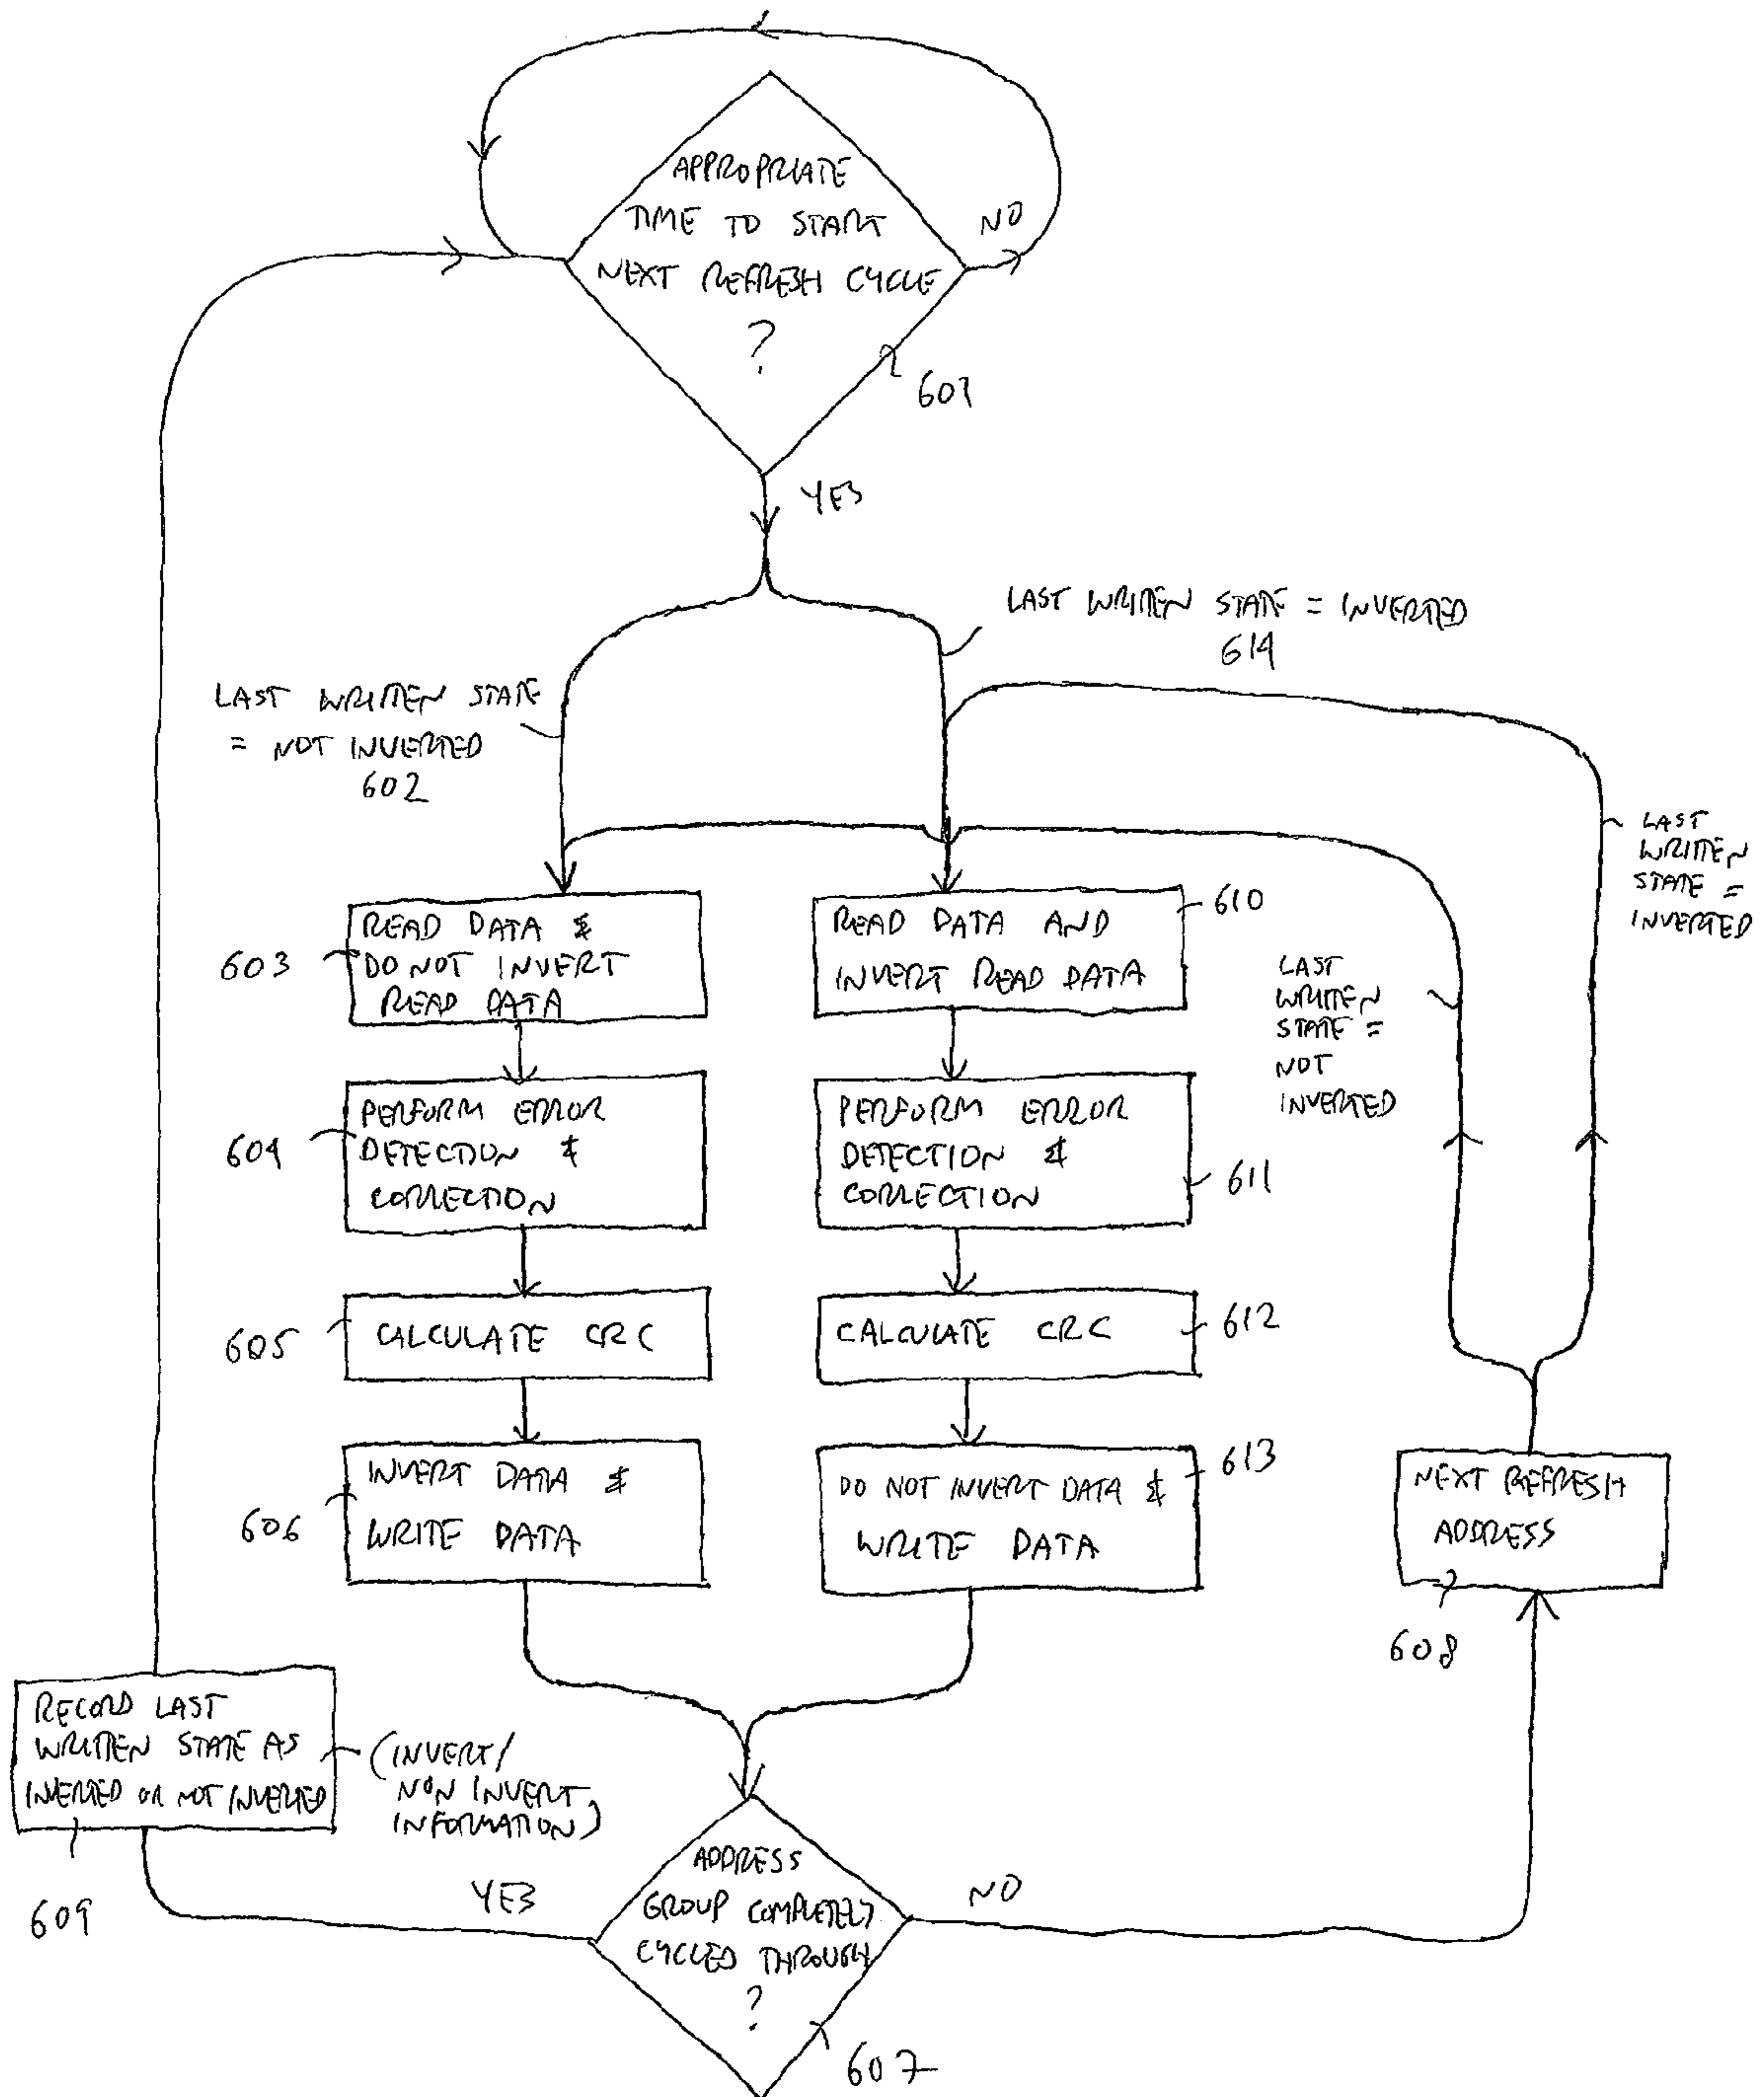 APPROPRIATE
TIME TO START
NEXT REFRESH CYCLE
?
NO
601
YES
LAST WRITTEN STATE = INVERTED
614
LAST WRITTEN STATE
= NOT INVERTED
602
LAST
WRITTEN
STATE =
INVERTED
READ DATA &
DO NOT INVERT
READ DATA
603
READ DATA AND
INVERT READ DATA
610
LAST
WRITTEN
STATE =
NOT
INVERTED
PERFORM ERROR
DETECTION &
CORRECTION
604
PERFORM ERROR
DETECTION &
CORRECTION
611
CALCULATE CRC
605
CALCULATE CRC
612
INVERT DATA &
WRITE DATA
606
DO NOT INVERT DATA &
WRITE DATA
613
NEXT REFRESH
ADDRESS
608
RECORD LAST
WRITTEN STATE AS
INVERTED OR NOT INVERTED
609
(INVERT/
NON INVERT
INFORMATION)
ADDRESS
GROUP COMPLETELY
CYCLED THROUGH
?
YES
NO
607